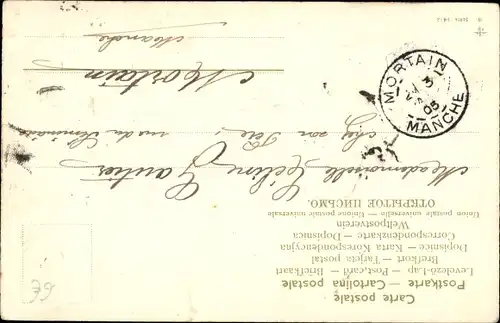 Carte postale
Postkarte — Cartolina postale
Levelező-Lap — Post card — Briefkaart
Brefkort — Tarjeta postal
Dopisnice — Karta Korespondencyjna
Correspondenzkarte — Dopisnica
Weltpostverein
Union postale universelle — Unione postale universale
ОТКРЫТОЕ ПИСЬМО.
Mademoiselle Céline Gautier
chez son Père, rue du
Mortain
Manche
MORTAIN
3
05
MANCHE